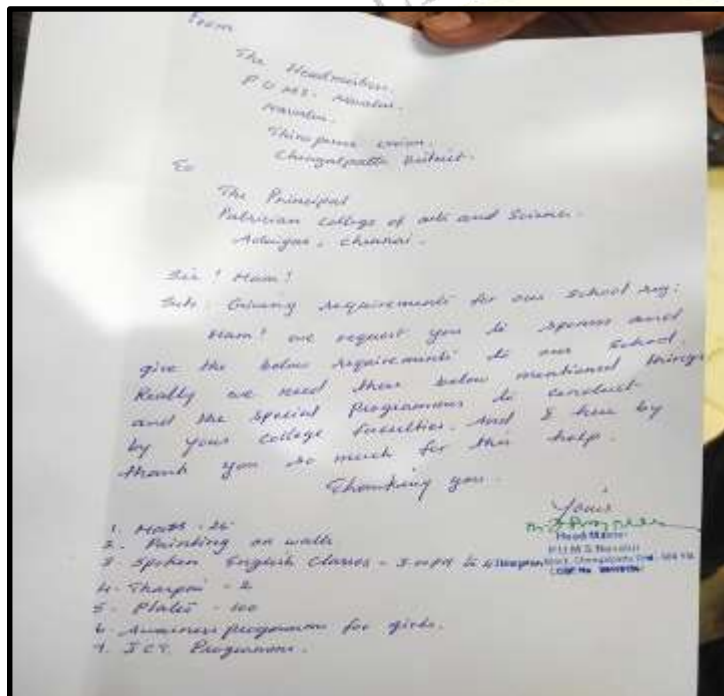 From
The Headmistress.
P.U.M.S. Navalur.
Navalur.
Thiruporur union.
Chengalpattu District.
To
The Principal
Patrician College of arts and Science.
Adaiyar, Chennai.
Sir! Mam!
Sub: Giving requirements for our school reg:
Mam! we request you to sponsor and
give the below requirements to our school
Really we need these below mentioned things
and the special Programmes to conduct
by your college faculties. And I here by
thank you so much for this help.
Thanking you.
Yours
1. Matts - 25
2. Painting on walls
Head Master
P.U.M.S Navalur
3. Spoken English Classes -
4. Tharpai - 2
5. Plates - 100
6. Awareness programme for girls.
7. I C T. Programme.